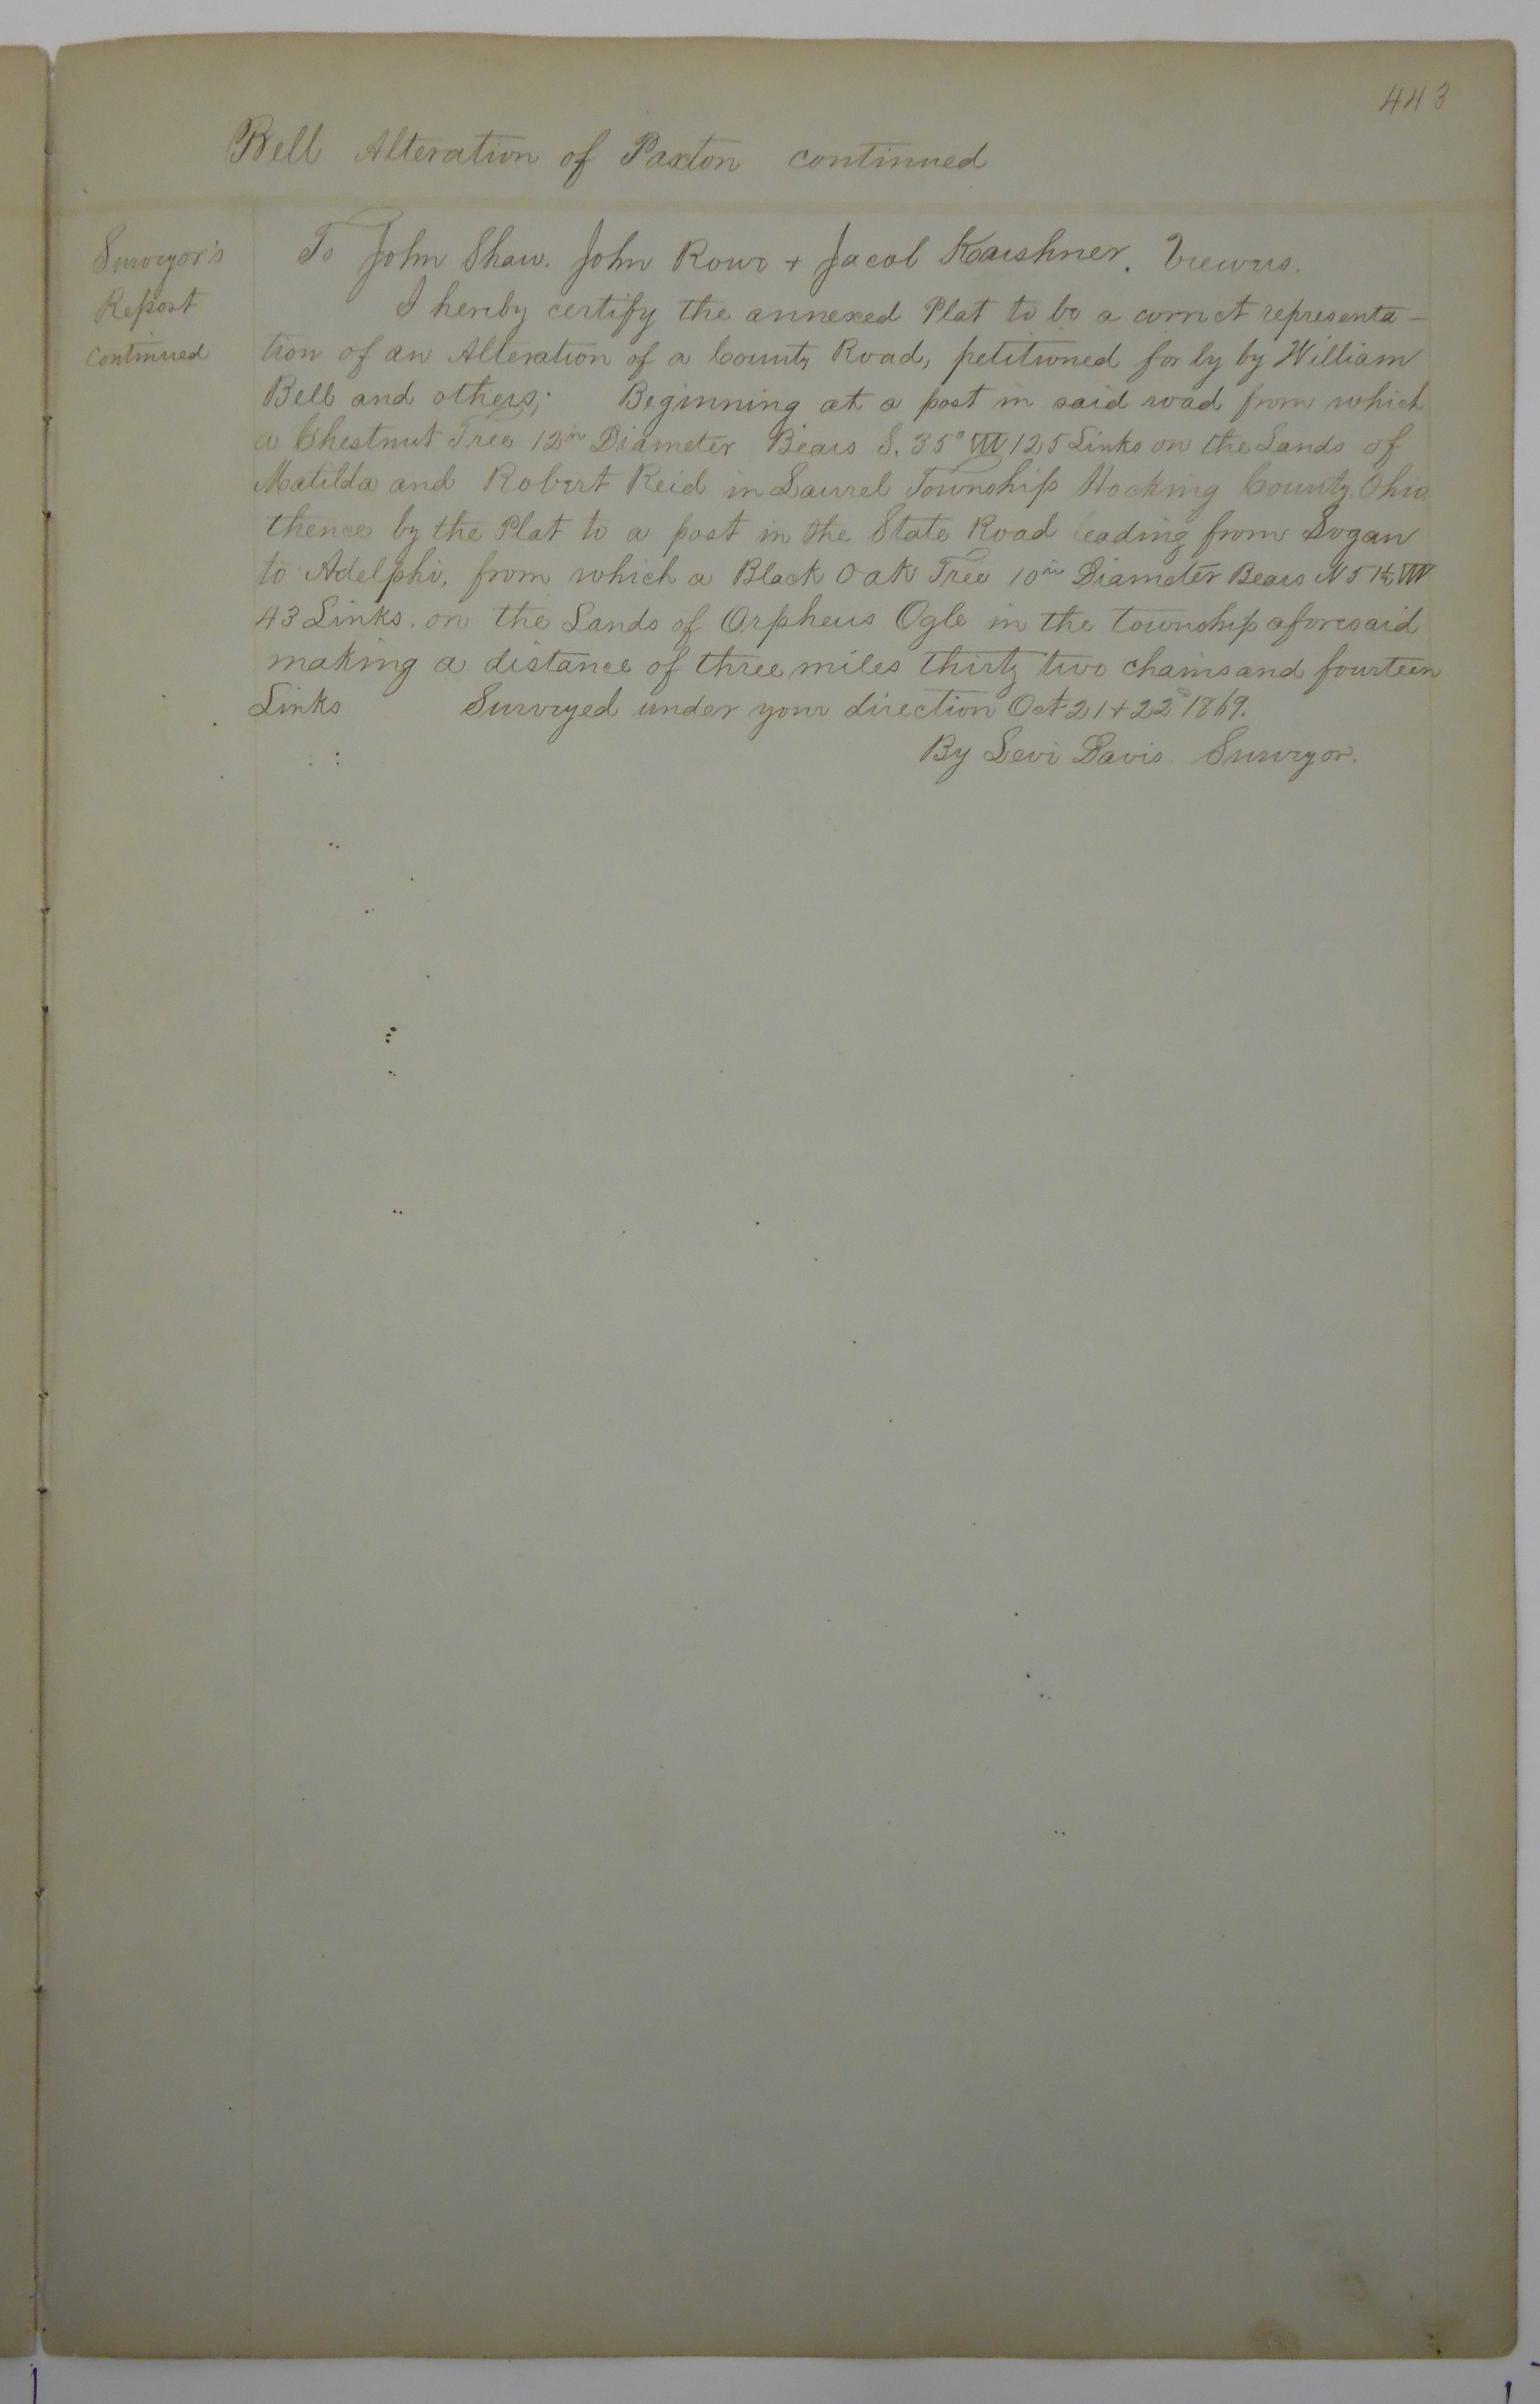 443
Bell Alteration of Paxton continued
Surveyor's
Report
continued
To John Shaw. John Rowe + Jacob Karshner. Viewers.
I hereby certify the annexed Plat to be a correct representa-
tion of an Alteration of a County Road, petitioned for by by William
Bell and others; Beginning at a post in said road from which
a Chestnut Tree 12in Diameter Bears S. 35° W 125 Links on the Lands of
Matilda and Robert Reid in Laurel Township Hocking County Ohio.
thence by the Plat to a post in the State Road leading from Logan
to Adelphi, from which a Black Oak Tree 10in Diameter Bears N 51½ W
43 Links. on the Lands of Orpheus Ogle in the township aforesaid
making a distance of three miles thirty two chains and fourteen
Links Surveyed under your direction Oct 21 + 22d 1869.
By Levi Davis. Surveyor.